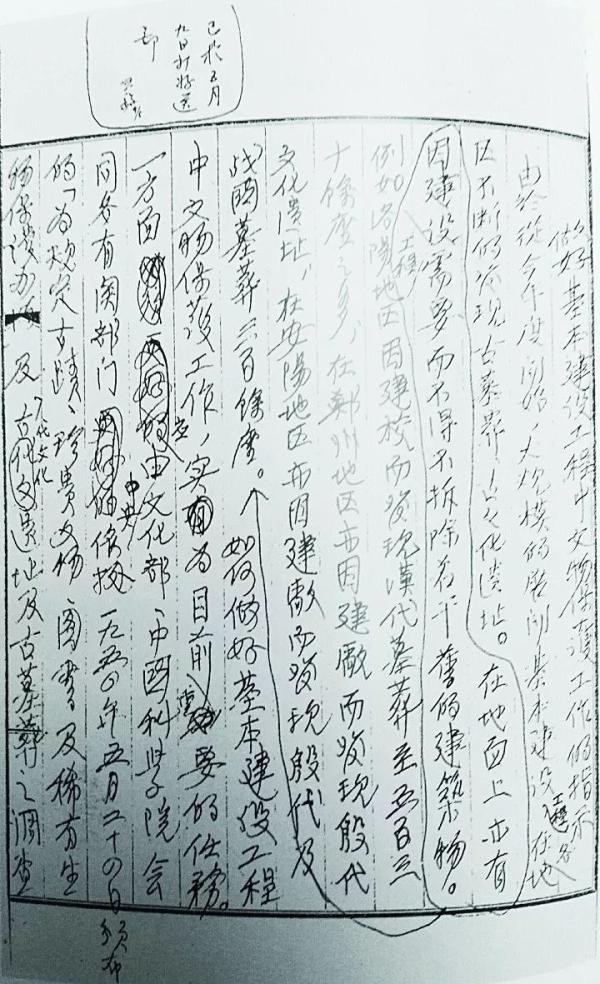 已于五月
九日打好送
郑
做好基本建设工程中文物保护工作的指示
由于从今年度开始，大规模的展开基本建设工程，各地
区不断的发现古墓葬、古文化遗址。在地面上亦有
因建设需要而不得不拆除若干旧的建筑物。
例如洛阳地区因建校工程而发现汉代墓葬至五百三
十余座之多，在郑州地区亦因建厰而发现殷代
文化遗址，在安阳地区亦因建厰而发现殷代及
战国墓葬三百余座。如何做好基本建设工程
中文物保护工作，实为目前重要的任务。
一方面应由文化部、中国科学院会
同各有关部门依据中央一九五〇年五月二十四日颁布
的「为规定古蹟、珍贵文物、图书及稀有生
物保护办法及古代文化遗址及古墓葬之调查